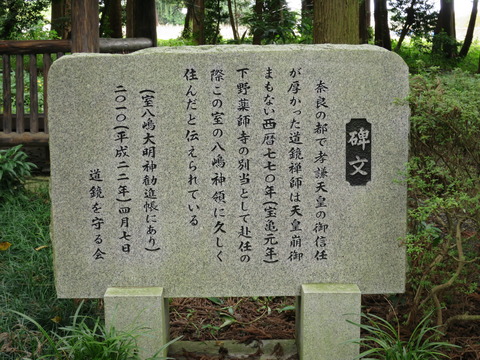 碑文
奈良の都で孝謙天皇の御信任
が厚かった道鏡禅師は天皇崩御
まもない西暦七七〇年(宝亀元年)
下野薬師寺の別当として赴任の
際この室の八嶋神領に久しく
住んだと伝えられている
(室八嶋大明神勧進帳にあり)
二〇一〇(平成二二年)四月七日
道鏡を守る会